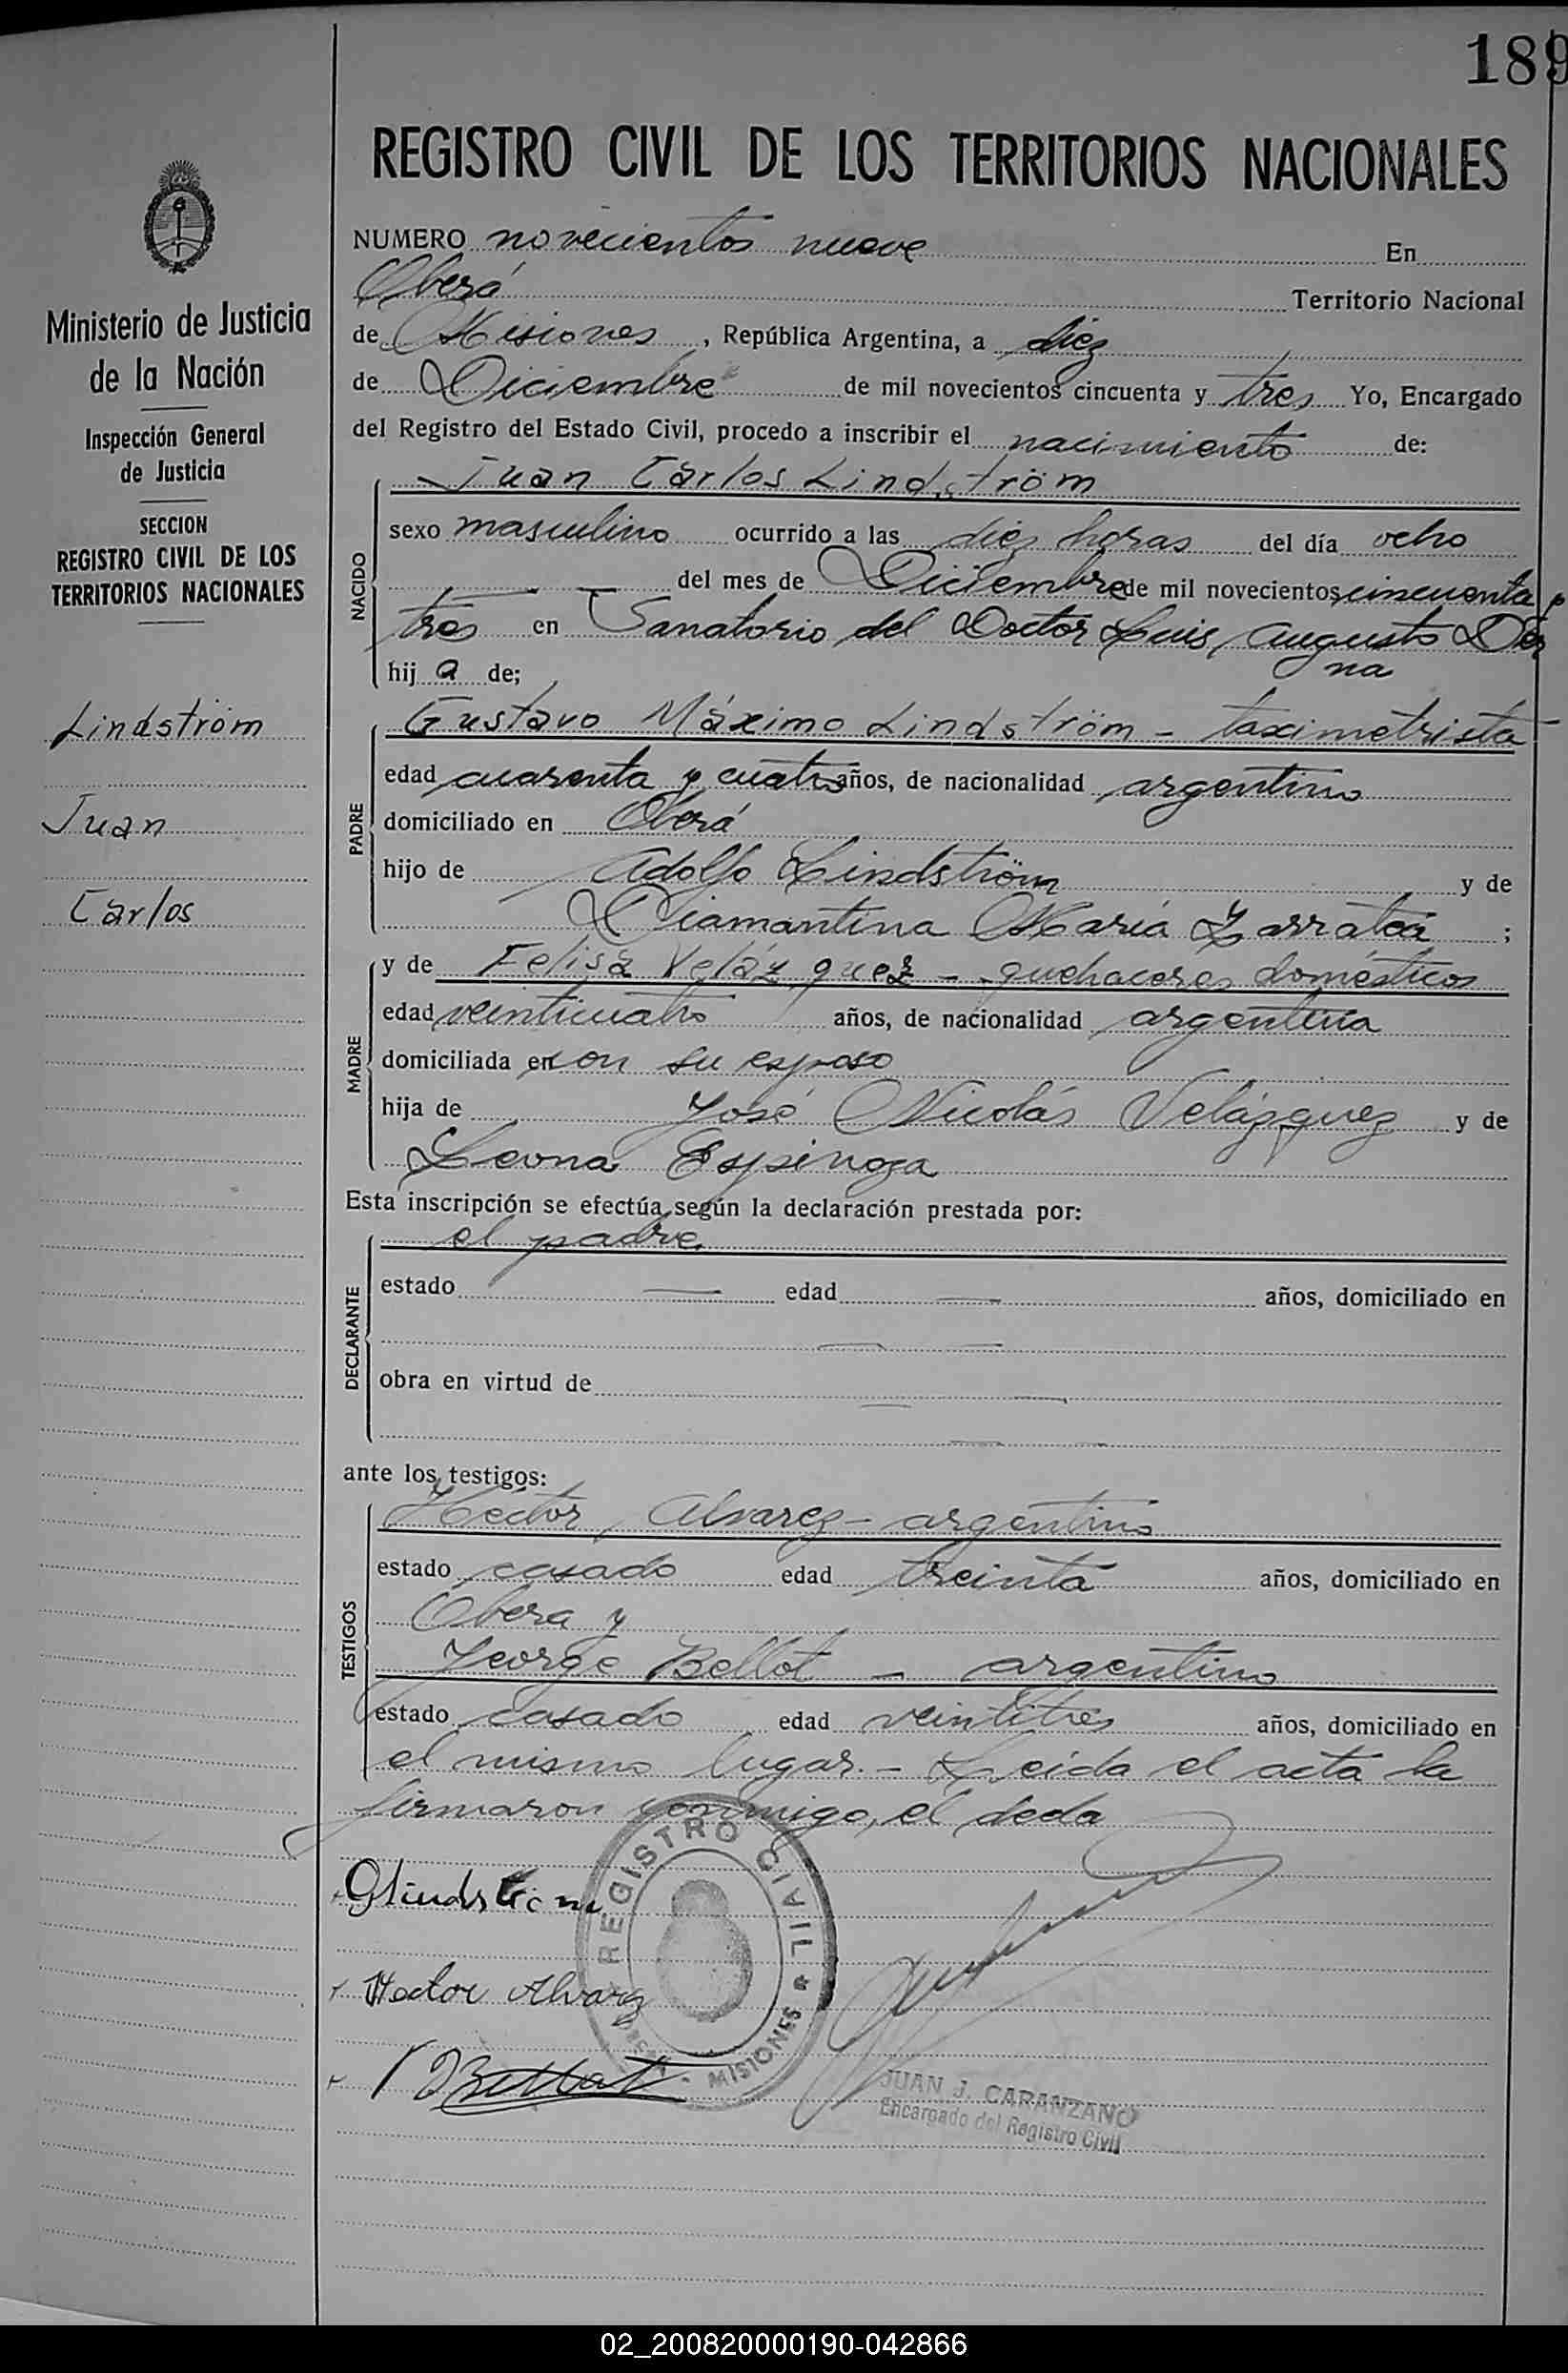 189
REGISTRO CIVIL DE LOS TERRITORIOS NACIONALES
Ministerio de Justicia
de la Nación
Inspección General
de Justicia
SECCION
REGISTRO CIVIL DE LOS
TERRITORIOS NACIONALES
Lindström
Juan
Carlos
NUMERO novecientos nueve En
Oberá Territorio Nacional
de Misiones, República Argentina, a diez
de Diciembre de mil novecientos cincuenta y tres Yo, Encargado
del Registro del Estado Civil, procedo a inscribir el nacimiento de:
NACIDO
Juan Carlos Lindström
sexo masculino ocurrido a las diez horas del día ocho
del mes de Diciembre de mil novecientos cincuenta y
tres en Sanatorio del Doctor Luis Augusto Der
na
hij a de;
PADRE
Gustavo Máximo Lindström - taximetrista
edad cuarenta y cuatro años, de nacionalidad argentino
domiciliado en Oberá
hijo de Adolfo Lindström y de
Diamantina María Zarratea ;
MADRE
y de Felisa Velázquez - quehaceres domésticos
edad veinticuatro años, de nacionalidad argentina
domiciliada en con su esposo
hija de José Nicolás Velázquez y de
Leona Espinoza
Esta inscripción se efectúa según la declaración prestada por:
DECLARANTE
el padre
estado — edad — años, domiciliado en
obra en virtud de
ante los testigos:
TESTIGOS
Héctor Alvarez - argentino
estado casado edad treinta años, domiciliado en
Obera y
George Bellot - argentino
estado casado edad veintitrés años, domiciliado en
el mismo lugar. - Leida el acta la
firmaron conmigo, el
GLindström
Hector Alvarez
Bellot
REGISTRO CIVIL
MISIONES
JUAN J. CARANZANO
Encargado del Registro Civil
02_200820000190-042866